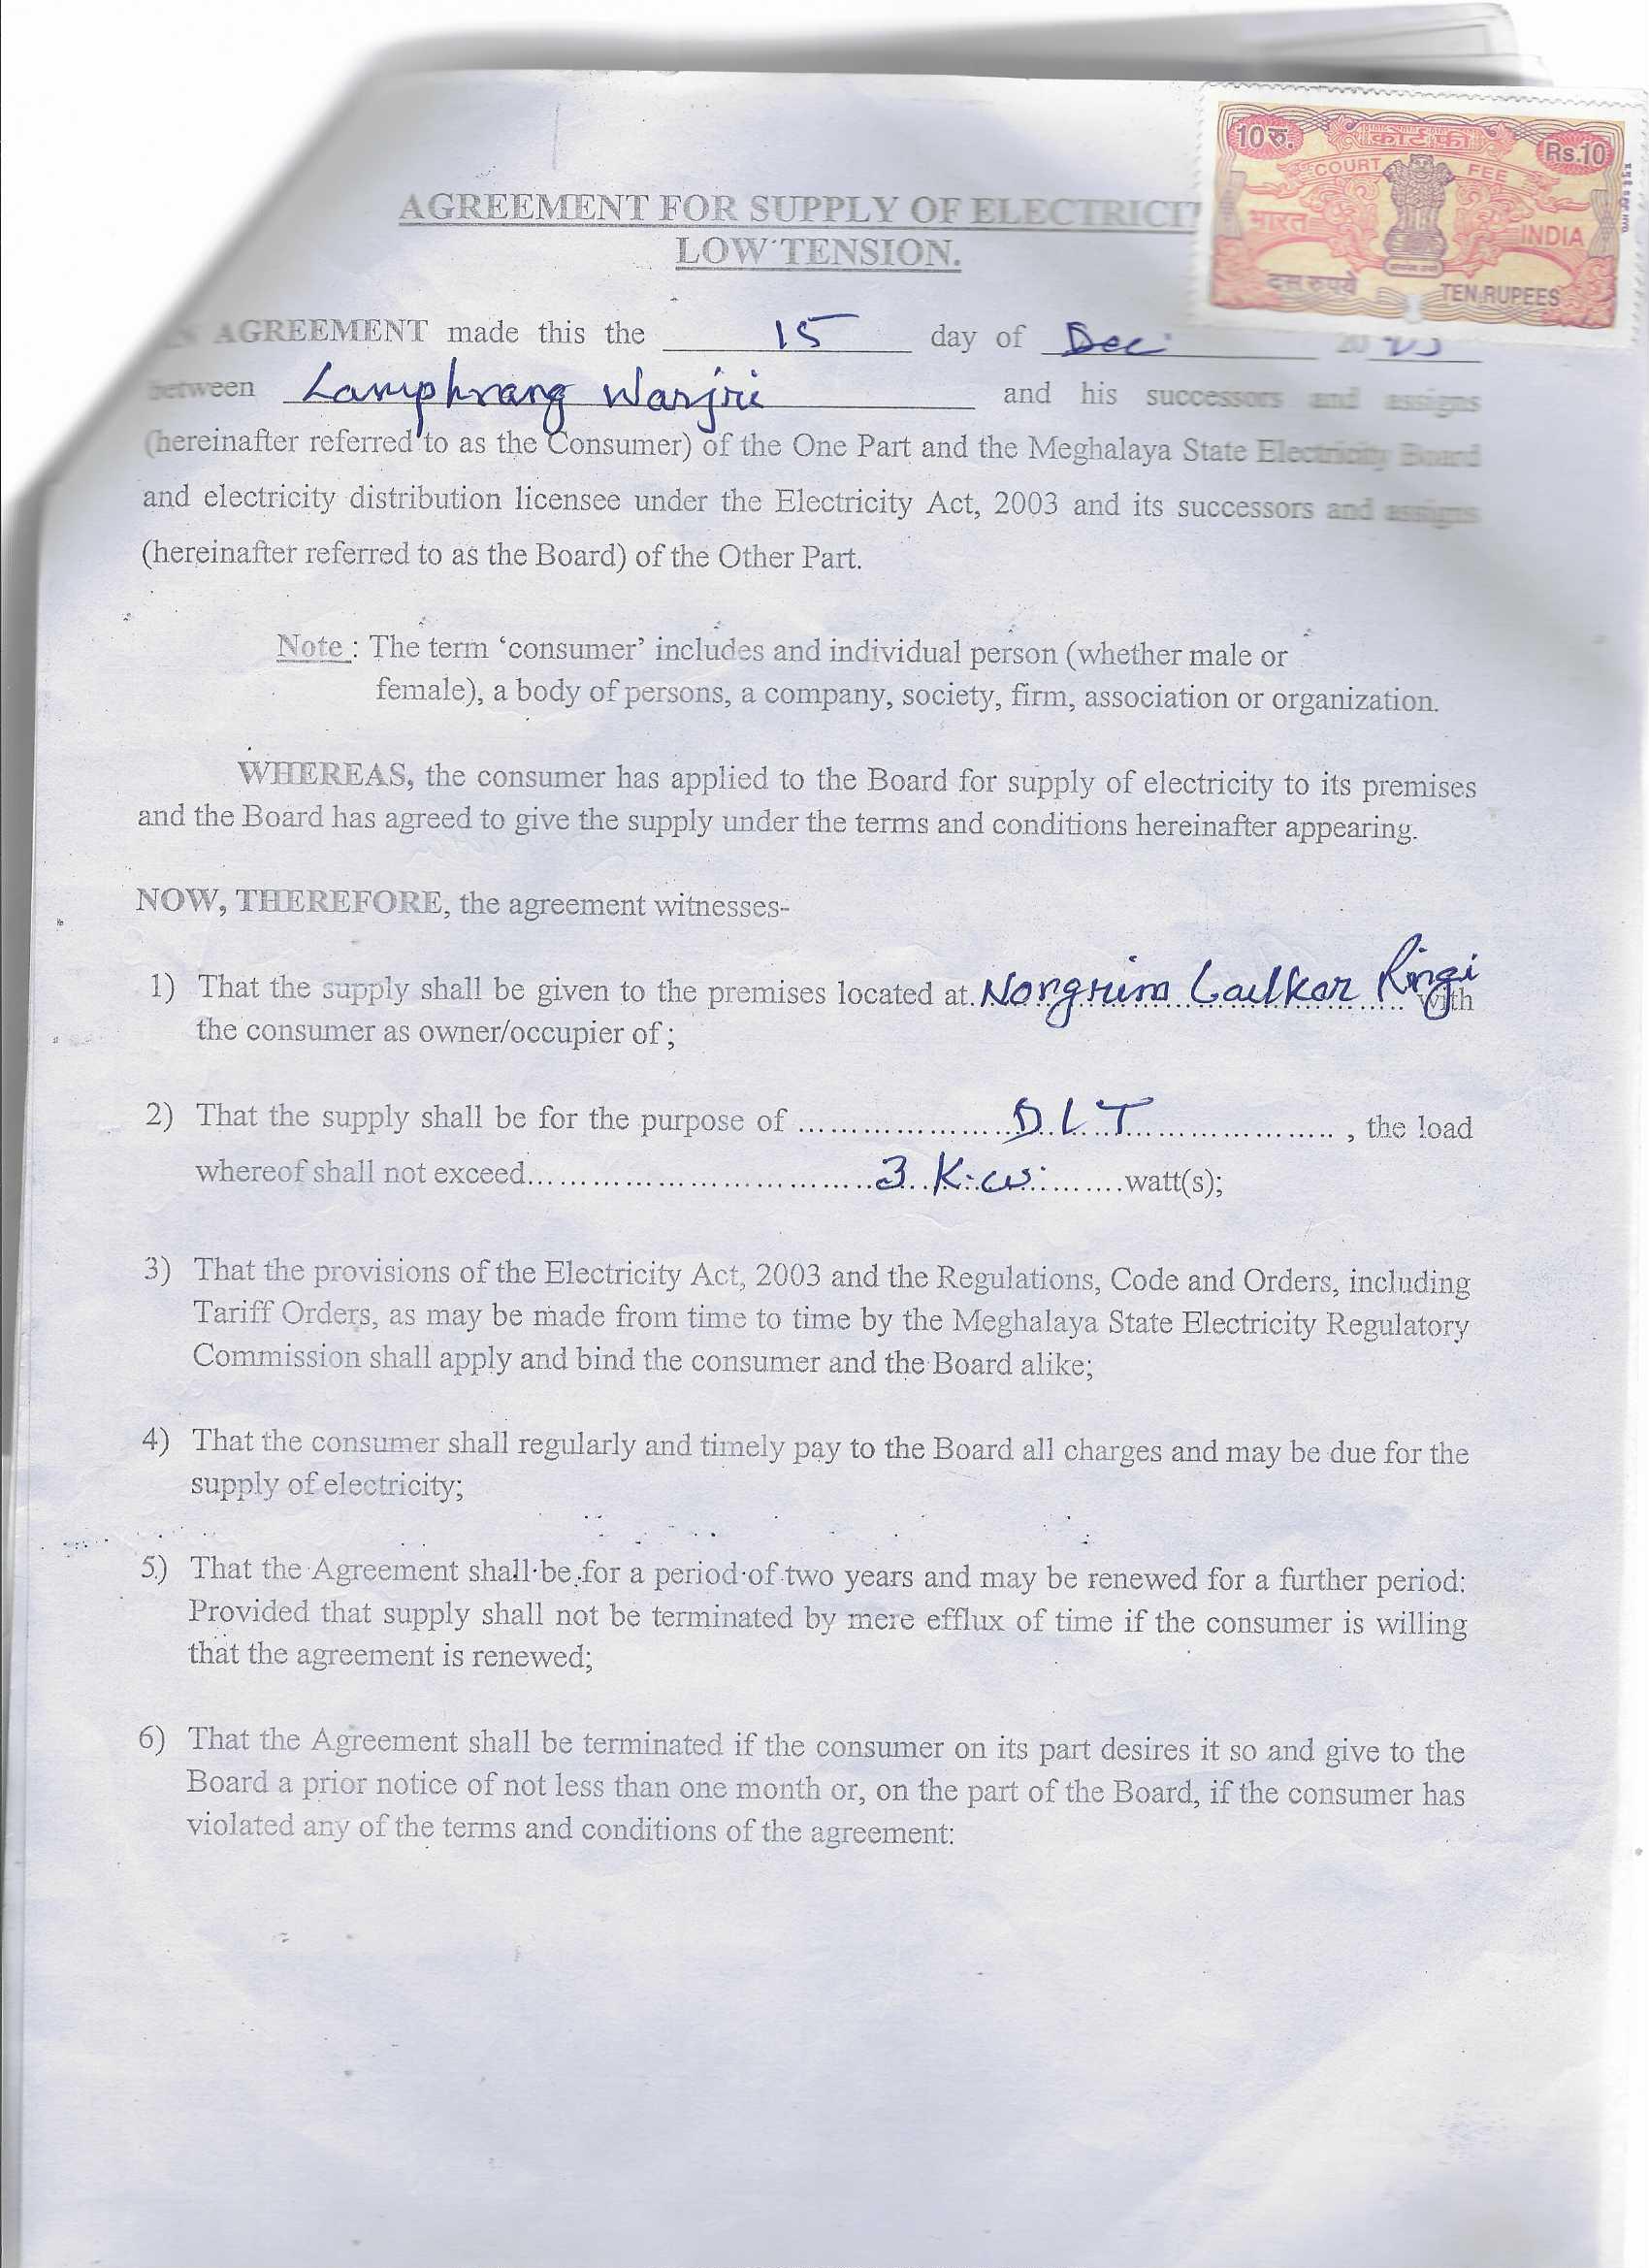 10 रु. कोर्ट फी Rs.10
COURT FEE
भारत INDIA
दस रुपये TEN RUPEES
AGREEMENT FOR SUPPLY OF ELECTRICIT
LOW TENSION.
AGREEMENT made this the 15 day of Dec 20
between Lamphrang Warjri and his successors and assigns
(hereinafter referred to as the Consumer) of the One Part and the Meghalaya State Electricity Board
and electricity distribution licensee under the Electricity Act, 2003 and its successors and assigns
(hereinafter referred to as the Board) of the Other Part.
Note : The term ‘consumer’ includes and individual person (whether male or
female), a body of persons, a company, society, firm, association or organization.
WHEREAS, the consumer has applied to the Board for supply of electricity to its premises
and the Board has agreed to give the supply under the terms and conditions hereinafter appearing.
NOW, THEREFORE, the agreement witnesses-
1) That the supply shall be given to the premises located at Nongrim Laitkor Rngi with
the consumer as owner/occupier of ;
2) That the supply shall be for the purpose of ........ D L T ........ , the load
whereof shall not exceed........ 3 K.w. ........watt(s);
3) That the provisions of the Electricity Act, 2003 and the Regulations, Code and Orders, including
Tariff Orders, as may be made from time to time by the Meghalaya State Electricity Regulatory
Commission shall apply and bind the consumer and the Board alike;
4) That the consumer shall regularly and timely pay to the Board all charges and may be due for the
supply of electricity;
5) That the Agreement shall be for a period of two years and may be renewed for a further period:
Provided that supply shall not be terminated by mere efflux of time if the consumer is willing
that the agreement is renewed;
6) That the Agreement shall be terminated if the consumer on its part desires it so and give to the
Board a prior notice of not less than one month or, on the part of the Board, if the consumer has
violated any of the terms and conditions of the agreement: